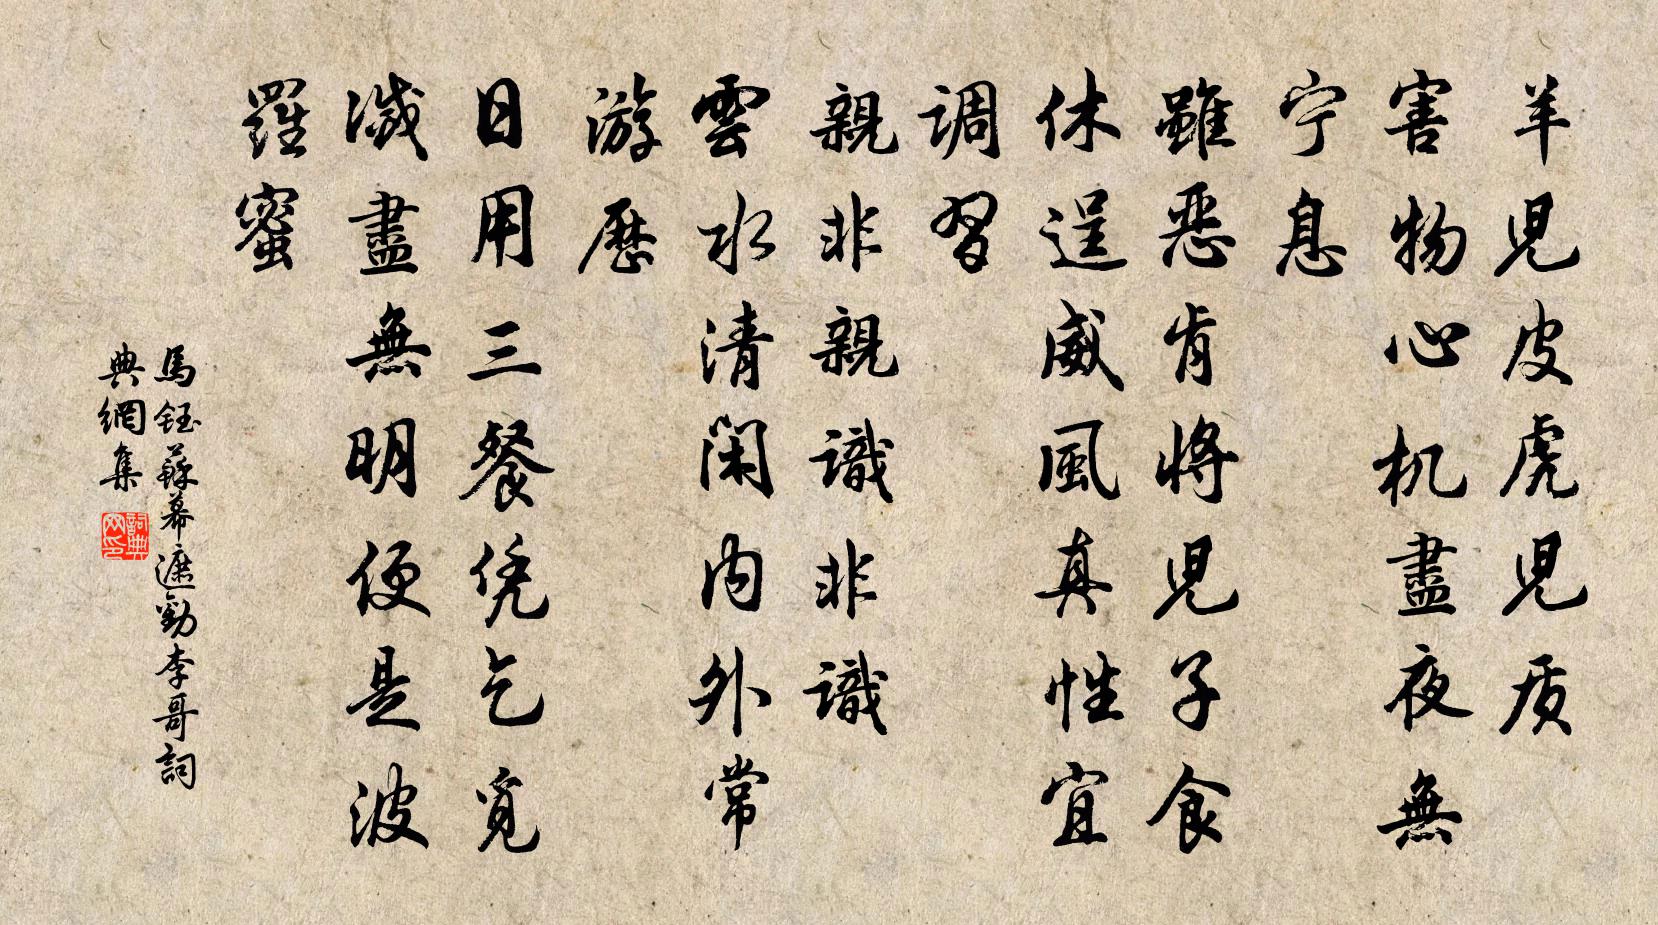 羊児皮虎児质
害物心机盡夜無
宁息
雖恶肯將児子食
休逞威風真性宜
调習
親非親識非識
雲水清闲内外常
游歷
日用三餐凭乞覓
滅盡無明便是波
羅蜜
馬鈺蘇幕遮勸李哥詞
典網集
詞典
网印